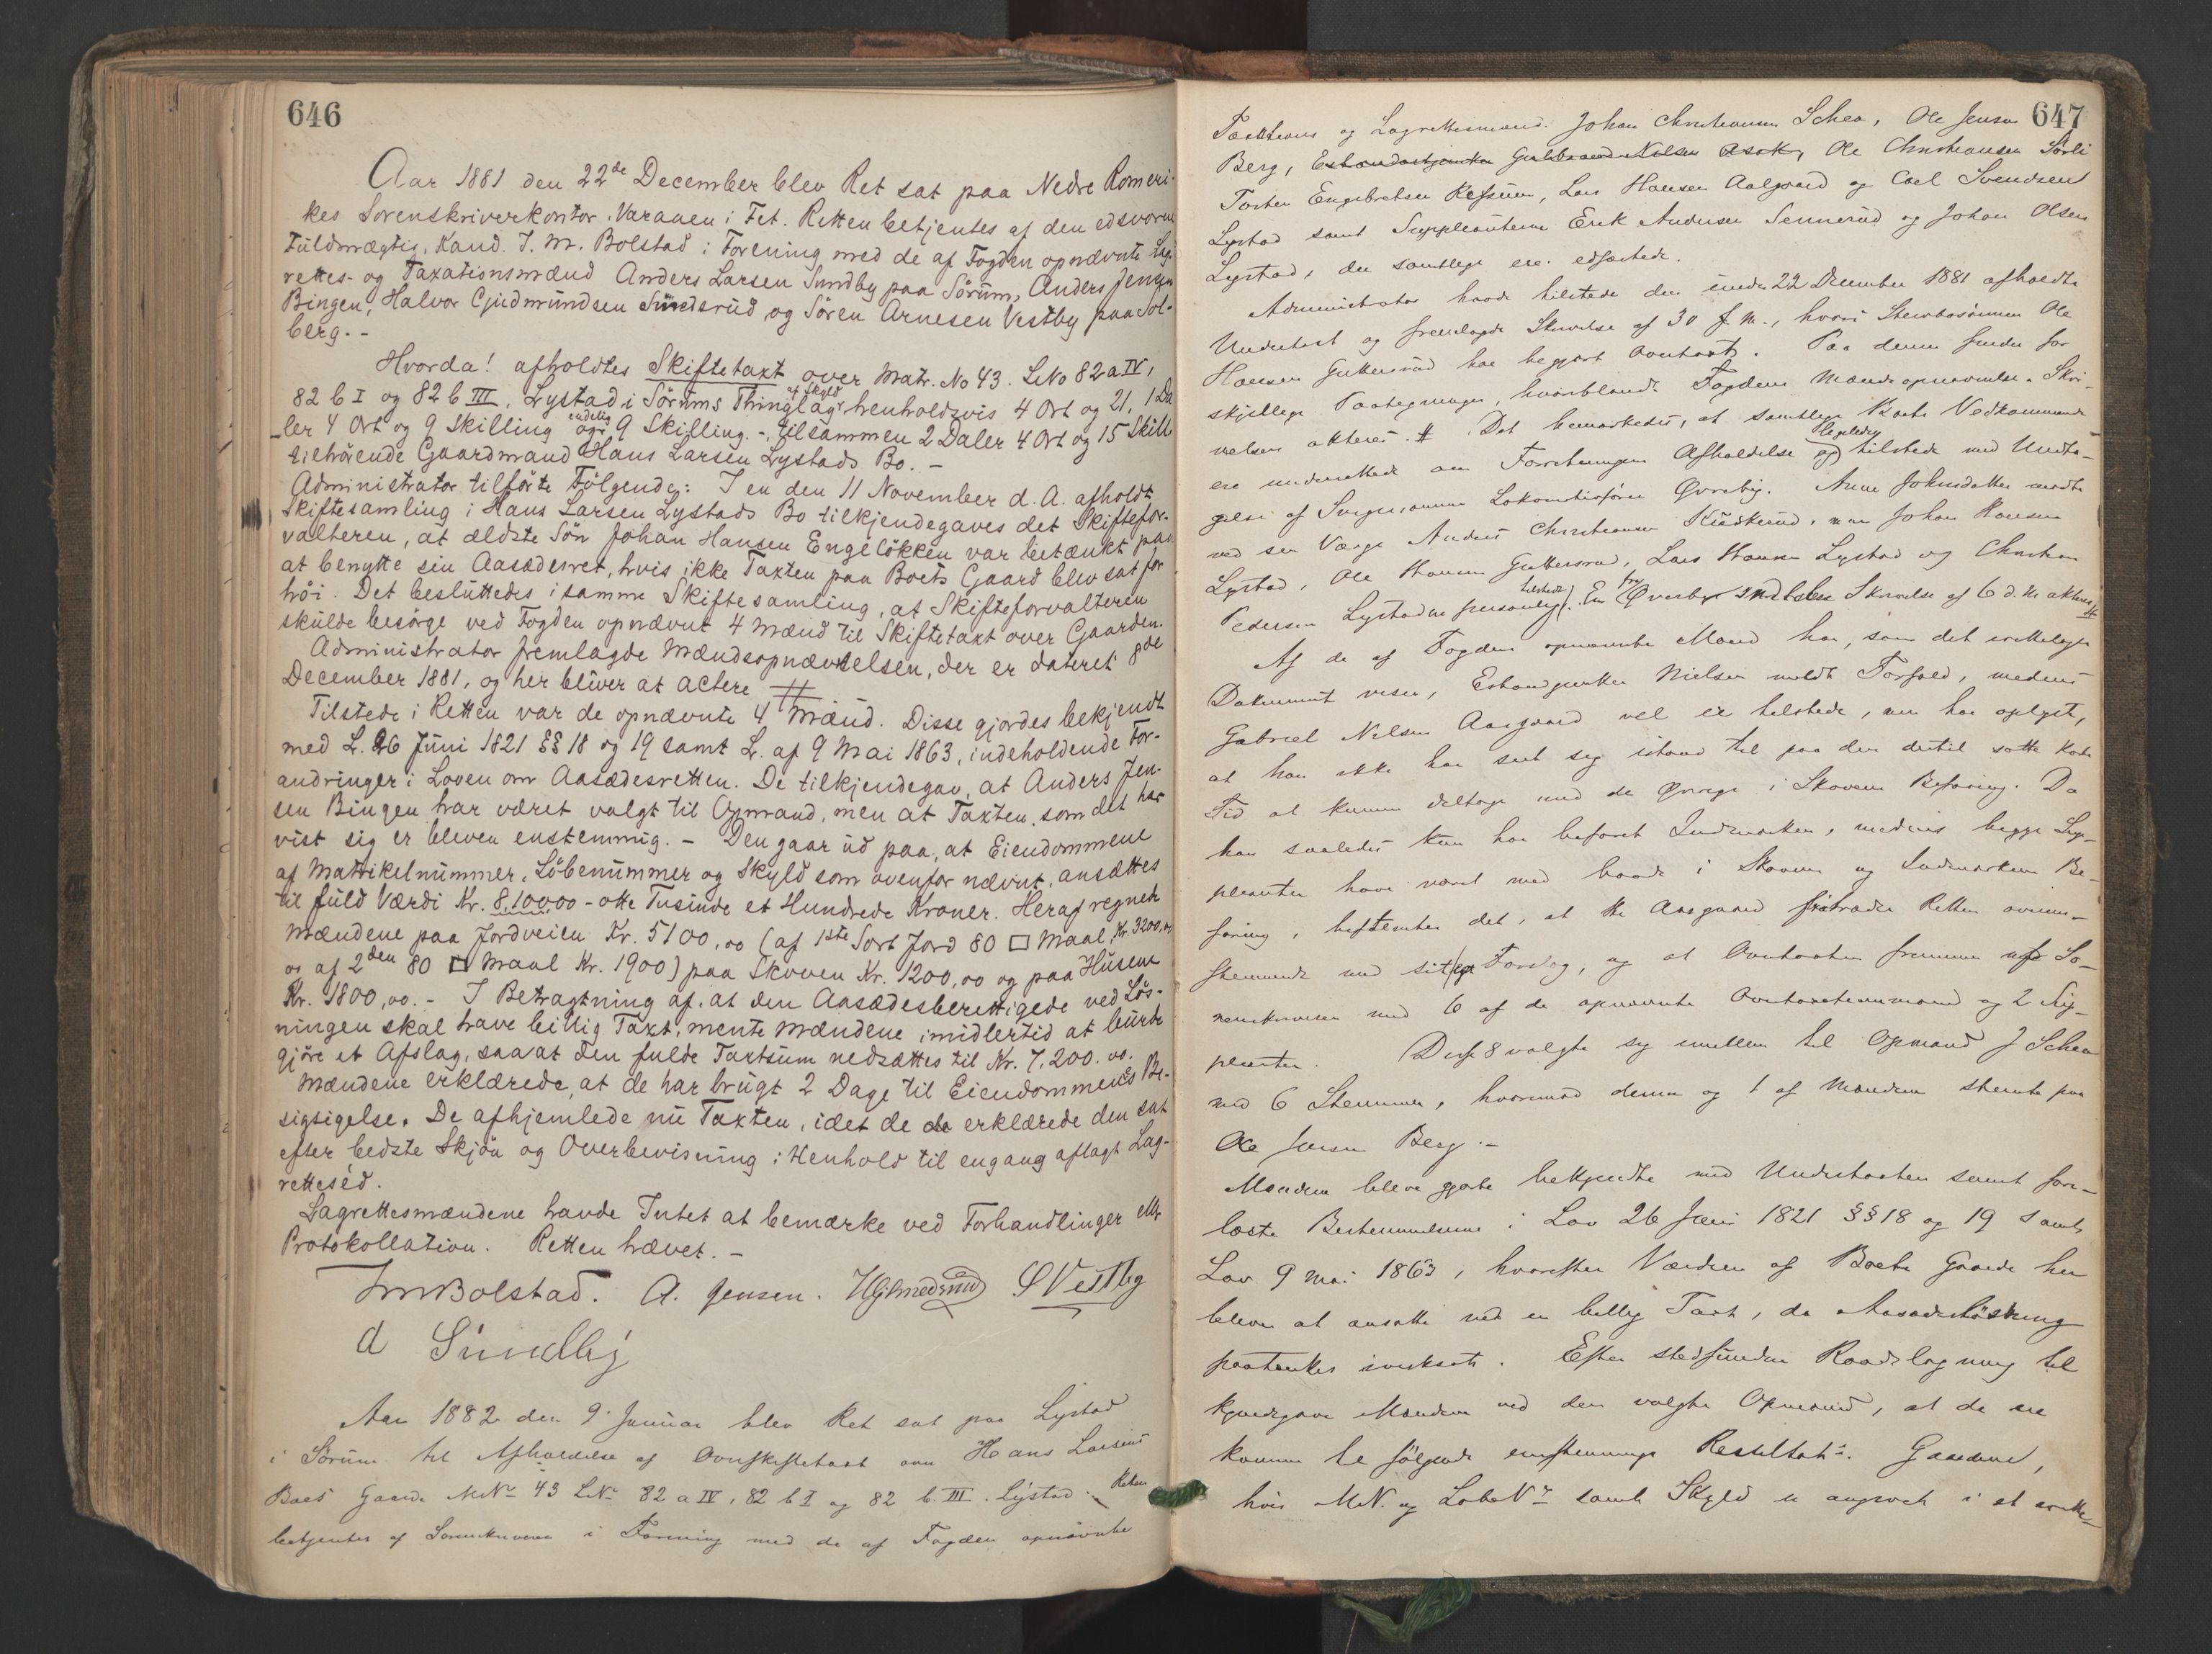 646
Aar 1881 den 22de December blev Ret sat paa Nedre Romeri-
kes Sorenskriverkontor. Varaaen i Fet. Retten betjentes af den edsvorne
Fuldmægtig, Kand. J. M. Bolstad i Forening med de af Fogden opnævnte Lag-
rettes- og Taxationsmænd Anders Larsen Sundby paa Sörum, Anders Jensen
Bingen, Halvor Gjudmundsen Sundsrud og Sören Arnesen Vestby paa Sol-
berg. -
Hvorda! afholdtes Skiftetaxt over Matr. No 43. LNo 82 a IV,
82 b I og 82 b III, Lystad i Sörums Thinglag af Skyld henholdsvis 4 Ort og 21, 1 Da
ler 4 Ort og 9 Skilling og endelig 9 Skilling. -, tilsammen 2 Daler 4 Ort og 15 Skill.
tilhörende Gaardmand Hans Larsen Lystads Bo. -
Administrator tilförte Fölgende: I en den 11 November d. A. afholdt
Skiftesamling i Hans Larsen Lystads Bo tilkjendegaves det Skiftefor-
valteren, at ældste Sön Johan Hansen Engelökken var betænkt paa
at benytte sin Aasædesret, hvis ikke Taxten paa Boets Gaard blev sat for
höi. Det besluttedes i samme Skiftesamling, at Skifteforvalteren
skulde besörge ved Fogden opnævnt 4 Mænd til Skiftetaxt over Gaarden.
Administrator fremlagde Mændsopnævnelsen, der er dateret 8de
December 1881, og her bliver at actere #
Tilstede i Retten var de opnævnte 4 Mænd. Disse gjordes bekjendt
med L. 26 Juni 1821 §§ 18 og 19 samt L. af 9 Mai 1863, indeholdende For-
andringer i Loven om Aasædesretten. De tilkjendegav, at Anders Jen-
sen Bingen har været valgt til Opmand, men at Taxten, som det har
vist sig er bleven enstemmig. - Den gaar ud paa, at Eiendommene
af Mattikelnummer, Löbenummer og Skyld som ovenfor nævnt, ansættes
til fuld Værdi Kr. 8,100,00 - otte Tusinde et Hundrede Kroner. Heraf regnet
Mændene paa Jordveien Kr. 5100,00 (af 1ste Sort Jord 80 □ Maal, Kr. 3200,00
og af 2den 80 □ Maal Kr. 1900) paa Skoven Kr. 1200,00 og paa Husene
Kr. 1800,00. - I Betragtning af, at den Aasædesberettigede ved Lös-
ningen skal have billig Taxt, mente Mændene imidlertid at burde
gjöre et Afslag, saa at den fulde Taxtsum nedsættes til Kr. 7,200.00.
Mændene erklærede, at de har brugt 2 Dage til Eiendommenes Be-
sigtigelse. De afhjemlede nu Taxten, idet de erklærede den sat
efter bedste Skjön og Overbevisning i Henhold til engang aflagt Lag-
rettesed.
Lagrettesmændene havde Intet at bemærke ved Forhandlinger ell.
Protokollation. Retten hævet. -
JMBolstad. A. Jensen. SVestby
A Sundby
Aar 1882 den 9. Januar blev Ret sat paa Lystad
i Sörum til Afholdelse af Overskiftetaxt over Hans Larsens
Boes Gaarde MNo 43 LNo 82 a IV, 82 b I og 82 b III. Lystad. Retten
betjentes af Sorenskriveren i Forening med de af Fogden opnævnte
647
Taxtmænd og Lagrettesmænd. Johan Christiansen Schea, Ole Jensen
Berg, Gulbrand Nilsen Asak, Ole Christiansen Sörli
Torsten Engebretsen Refsum, Lars Hansen Aalgaard og Carl Svendsen
Lystad samt Suppleanterne Erik Andersen Sennerud og Johan Olsen
Lystad, der samtlige ere edfæstede.
Administrator havde tilstede den under 22 December 1881 afholdte
Undertaxt og fremlagde Skrivelse af 30 f. M., hvori Stervbosönnen Ole
Hansen Guttersrud har begjært Overtaxt. Paa denne findes for
skjellige Paategninger, hvoriblandt Fogdens Mændsopnævnelse. Skri-
velsen akteres #. Det bemærkedes, at samtlige Boets Vedkommende
ere underrettede om Forretningens Afholdelse og ligeledes tilstede med Undta-
gelse af Svigersönnen Lokomotivförer Överby. Anne Johnsdatter mödte
ved sin Værge Anders Christiansen, men Johan Hansen
Lystad, Ole Hansen Guttersrud, Lars Hansen Lystad og Christian
Pedersen Lystad er personlig tilstede. En fra Överby indkommen Skrivelse af 6 d. M. akteres #
Af de af Fogden opnævnte Mænd har, som det irettelagte
Dokument viser, Nielsen meldt Forfald, medens
Gabriel Nilsen Aasgaard vel er tilstede, men har oplyst,
at han ikke har seet sig istand til paa den dertil satte korte
Tid at kunne deltage med de Övrige i Skovens Befaring. Da
han saaledes kun har befaret Indmarken, medens begge Sup-
pleanter have været med baade i Skovens og Indmarkens Be-
faring, bestemtes det, at Aasgaard fratræder Retten overens-
stemmende med sit eget Forslag, og at Overtaxten fremmes af So-
renskriveren med 6 af de opnævnte Overtaxtsmænd og 2 Sup-
pleanter. Disse 8 valgte sig imellem til Opmand J Schea
med 6 Stemmer, hvorimod denne og 1 af Mændene stemte paa
Ole Jensen Berg. -
Mændene bleve gjorte bekjendte med Undertaxten samt fore-
læste Bestemmelserne i Lov 26 Juni 1821 §§ 18 og 19 samt
Lov 9 Mai 1863, hvorefter Værdien af Boets Gaarde her
bliver at ansætte ved en billig Taxt, da Aasædeslösning
paatænkes iverksat. Efter stedfunden Raadslagning til
kjendegave Mændene ved den valgte Opmand, at de ere
komne til fölgende enstemmige Resultat: Gaardene,
hvis MN. og LöbeNr samt Skyld er angivet i et irette-